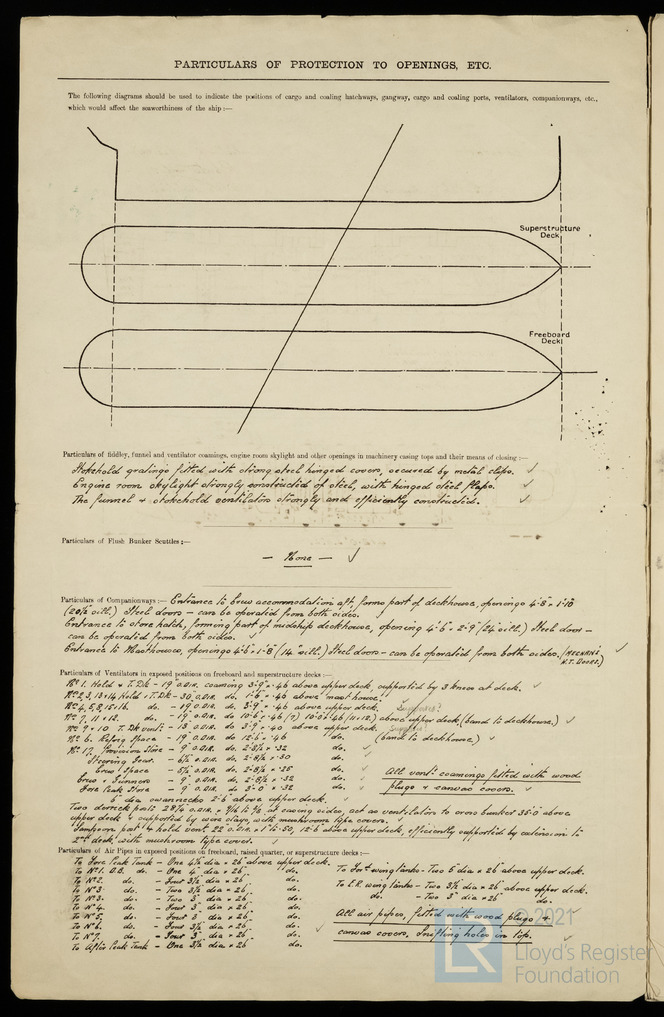 PARTICULARS OF PROTECTION TO OPENINGS, ETC.
The following diagrams should be used to indicate the positions of cargo and coaling hatchways, gangway, cargo and coaling ports, ventilators, companionways, etc.,
which would affect the seaworthiness of the ship :—
Superstructure
Deck
Freeboard
Deck
Particulars of fiddley, funnel and ventilator coamings, engine room skylight and other openings in machinery casing tops and their means of closing :—
Stokehold gratings fitted with strong steel hinged covers, secured by metal clips.
Engine room skylight strongly constructed of steel, with hinged steel flaps.
The funnel & stokehold ventilators strongly and efficiently constructed.
Particulars of Flush Bunker Scuttles :—
— None —
Particulars of Companionways :— Entrance to crew accommodation aft, forms part of deckhouse, openings 4'-8" x 1'-10"
(20½" sill.) Steel doors – can be operated from both sides.
Entrance to store hatch, forming part of midship deckhouse, opening 4'-6" x 2'-9" (24" sill) Steel door –
can be operated from both sides.
Entrance to Masthouses, openings 4'-6" x 1'-8" (14" sill) Steel doors – can be operated from both sides.
Particulars of Ventilators in exposed positions on freeboard and superstructure decks :—
No 1. Hold & T. Dk – 19" o.dia. coaming 3'-9" x .46 above upper deck, supported by 3 knees at deck.
Nos 2, 3, 13 & 14 Hold & T. Dk – 30" o.dia. do. 1'-6" x .46 above mast house.
Nos 4, 5, 8, 15 & 16. do. – 19" o.dia. do. 3'-9" x .46 above upper deck.
Nos 7, 11 & 12. do. – 19" o.dia. do. 10'-6" x .46 (7) 10'-0" x .46 (11 & 12) above upper deck (band to deckhouse.)
Nos 9 & 10 T. Dk vents – 13" o.dia. do. 3'-9" x .40 above upper deck.
No 6. Reefer Space – 19" o.dia. do. 12'-6" x .46 do. (band to deckhouse.)
No 17. Provision Store – 9" o.dia. do. 2'-8½" x .32 do.
Steering Gear – 6½" o.dia. do. 2'-8½" x .30 do.
Crew Space – 5½" o.dia. do. 2'-8½" x .25 do.
Crew & Gunners – 9" o.dia. do. 2'-8½" x .32 do.
Fore Peak Store – 9" o.dia. do. 3'-0" x .32 do.
All vent. coamings fitted with wood
plugs & canvas covers.
6" dia swannecks 2'-6" above upper deck.
Two derrick posts o.dia. at casing sides, act as ventilators to cross bunker 35'-0" above
upper deck & supported by wire stays, with mushroom type covers.
Sampson post & hold vent. 22" o.dia. 12'-6" above upper deck, efficiently supported by extension to
2nd deck, with mushroom type cover.
Particulars of Air Pipes in exposed positions on freeboard, raised quarter, or superstructure decks :—
To Fore Peak Tank – One 4½" dia x 26" above upper deck.
To No 1. D.B. do. – One 4" dia x 26" do.
To No 2. do. – Four 3½" dia x 26" do.
To No 3 do. – Two 3½" dia x 26" do.
To No 3. do. – Two 3" dia x 26" do.
To No 4. do. – Four 3" dia x 26" do.
To No 5. do. – Four 3" dia x 26" do.
To No 6. do. – Four 3½" dia x 26" do.
To No 7. do. – Four 3" dia x 26" do.
To After Peak Tank – One 3½" dia x 26" do.
To Fort wing tanks – Two 5" dia x 26" above upper deck.
To E.R. wing tanks – Two 3½" dia x 26" above upper deck.
do. – Two 3" dia x 26" do.
All air pipes, fitted with wood plugs &
canvas covers. Snifting holes in top.
© 2021
LR
Lloyd's Register
Foundation